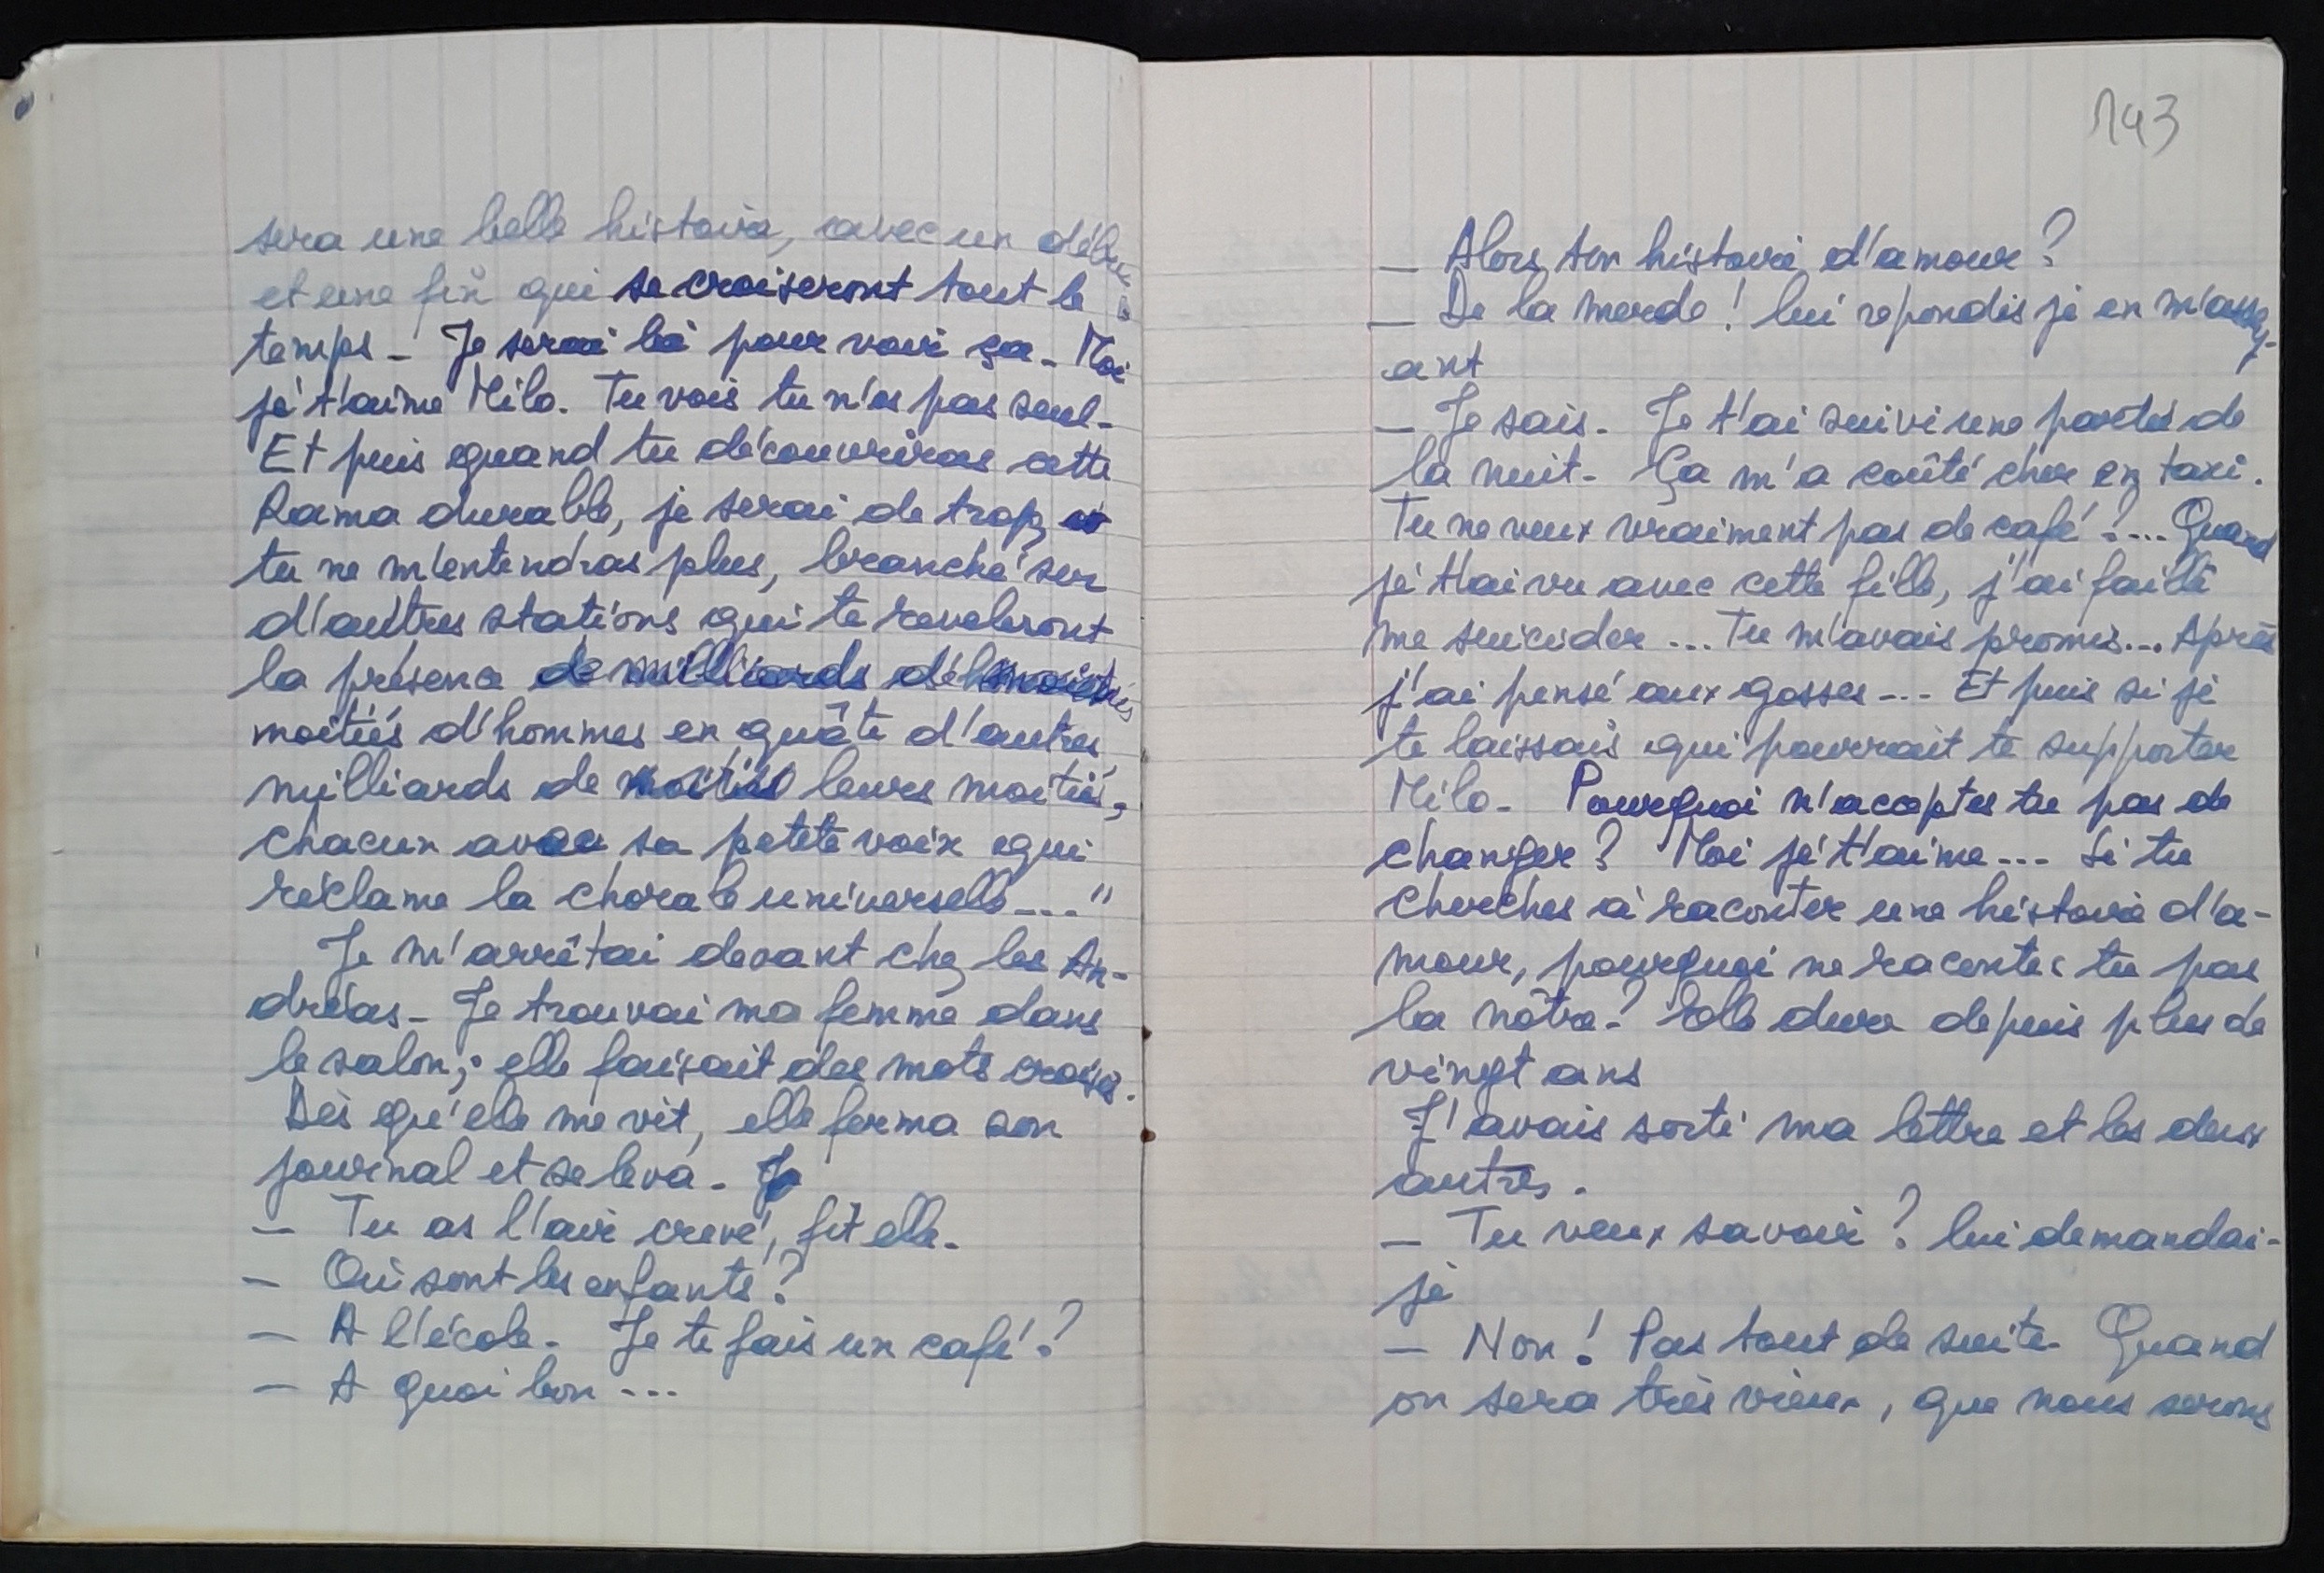 sera une belle histoire, avec un début
et une fin qui se croiseront tout le
temps - Je serai là pour voir ça - Moi
je t'aime Milo. Tu vois tu n'es pas seul -
Et puis quand tu découvriras cette
Rama durable, je serai de trop, et
tu ne m'entendras plus, branché sur
d'autres stations qui te reveleront
la présence de milliards de moitiés
moitiés d'hommes en quête d'autres
milliards de moitiés leurs moitiés,
chacun avec sa petite voix qui
réclame la chorale universelle ...."
Je m'arrêtai devant chez les An-
dréas - Je trouvai ma femme dans
le salon, elle faisait des mots croisés.
Dès qu'elle me vit, elle ferma son
journal et se leva - Je
- Tu as l'air crevé, fit elle -
- Où sont les enfants ?
- A l'école - Je te fais un café ?
- A quoi bon ...
143
- Alors ton histoire d'amour ?
- De la merde ! lui repondis je en m'assey-
ant
- Je sais - Je t'ai suivi une partie de
la nuit - Ça m'a coûté cher en taxi.
Tu ne veux vraiment pas de café ? ... Quand
je t'ai vu avec cette fille, j'ai failli
me suicider ... Tu m'avais promis ... Après
j'ai pensé aux gosses --- Et puis si je
te laissais qui pourrait te supporter
Milo - Pourquoi n'acceptes tu pas de
changer ? Moi je t'aime --- Si tu
cherches à raconter une histoire d'a-
mour, pourquoi ne racontes tu pas
la nôtre ? Elle dure depuis plus de
vingt ans
J'avais sorti ma lettre et les deux
autres.
- Tu veux savoir ? lui demandai-
je
- Non ! Pas tout de suite - Quand
on sera très vieux, que nous serons